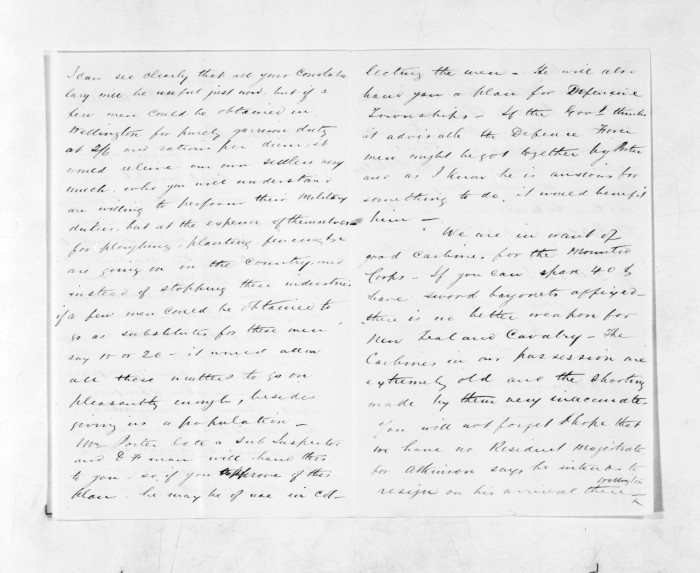 I can see clearly that all your Constabu
lary will be useful just now. but if a
few men could be obtained in
Wellington for purely garrison duty
at 2/6 and rations per diem, it
would relieve our own settlers very
much. who you will understand
are willing to perform their Military
duties, but at the expense of themselves
for ploughing, planting fencing &c
are going on in the Country, and
instead of stopping these industries
if a few men could be obtained to
go as substitutes for these men
say 10 or 20 - it would allow
all those matters to go on
pleasantly enough, besides
giving us a population -
Mr Porter late a Sub Inspector
and D F man will hand this
to you, so if you approve of this
plan. he may be of use in col-
lecting the men - He will also
hand you a plan for Defensive
Townships - If the Govt thinks
it advisable the Defence Force
men might be got together by Porter
and as I know he is anxious for
something to do, it would benefit
him -
We are in want of
good Carbines for the Mounted
Corps - If you can spare 40 to
have sword bayonets affixed -
there is no better weapon for
New Zealand Cavalry - The
Carbines in our possession are
extremely old and the shooting
made by them very inaccurate -
You will not forget I hope that
we have no Resident Magistrate
for Atkinson says he intends to
resign on his arrival there -
Wellington